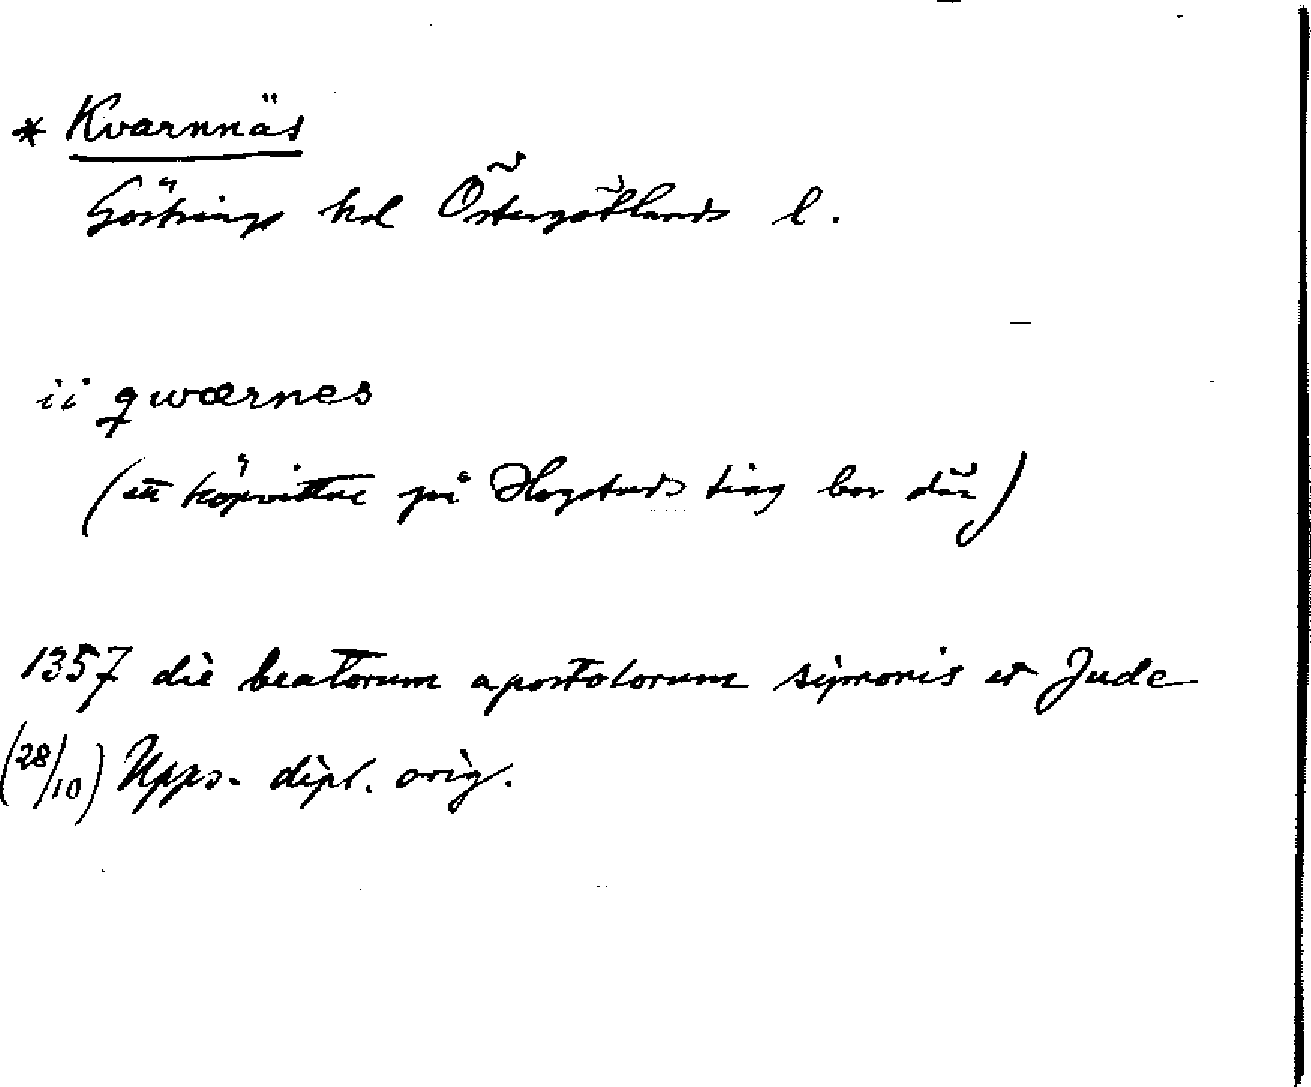 * Kvarnnäs
Göstrings hd Östergötlands l.
ii qwærnes
(ett köpvittne på Hogstads ting bor där)
1357 die beatorum apostolorum symonis et Jude
(28/10) Upps. dipl. orig.